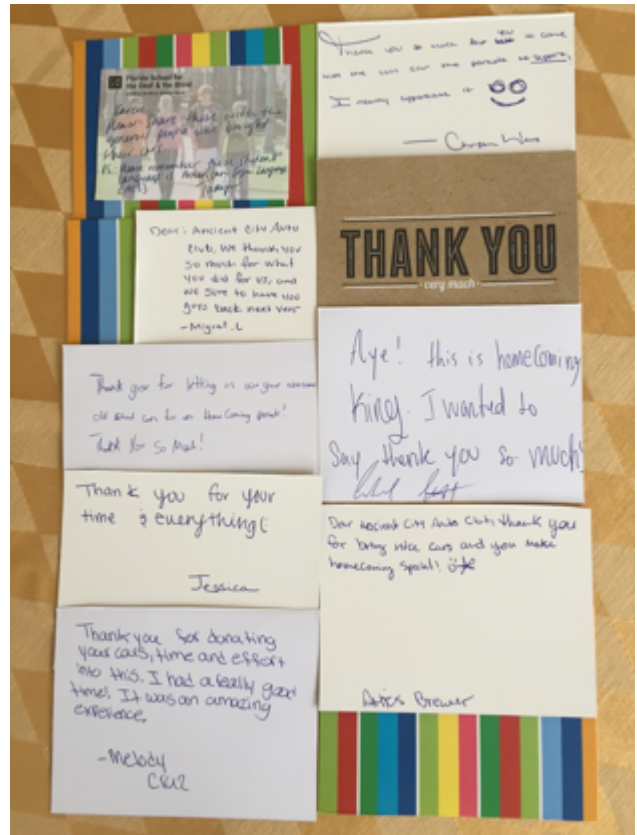 Florida School for
the Deaf & the Blind
Please share these cards the
general people who brought
their cars.
PS: Please remember these student
language is American Sign Language
(ASL)
Dear: Ancient City Auto
Club, We thank you
so much for what
you did for us, and
we sure to have you
guys back next year
-Miguel.L
Thank your for letting us use your awesome
old school cars for our Homecoming parade!
Thank You So Much!
Thank you for your
time & everything!
Jessica
Thank you for donating
your cars, time and effort
into this. I had a really good
time! It was an amazing
experience.
-Melody
Cruz
Thank you so much for you to come
with the cars for the parade to
I really appreciate it
THANK YOU
-very much-
Aye! this is homecoming
King. I wanted to
Say thank you so much!
Dear Ancient City Auto Club, thank you
for bring nice cars and you make
homecoming special!
Brewer